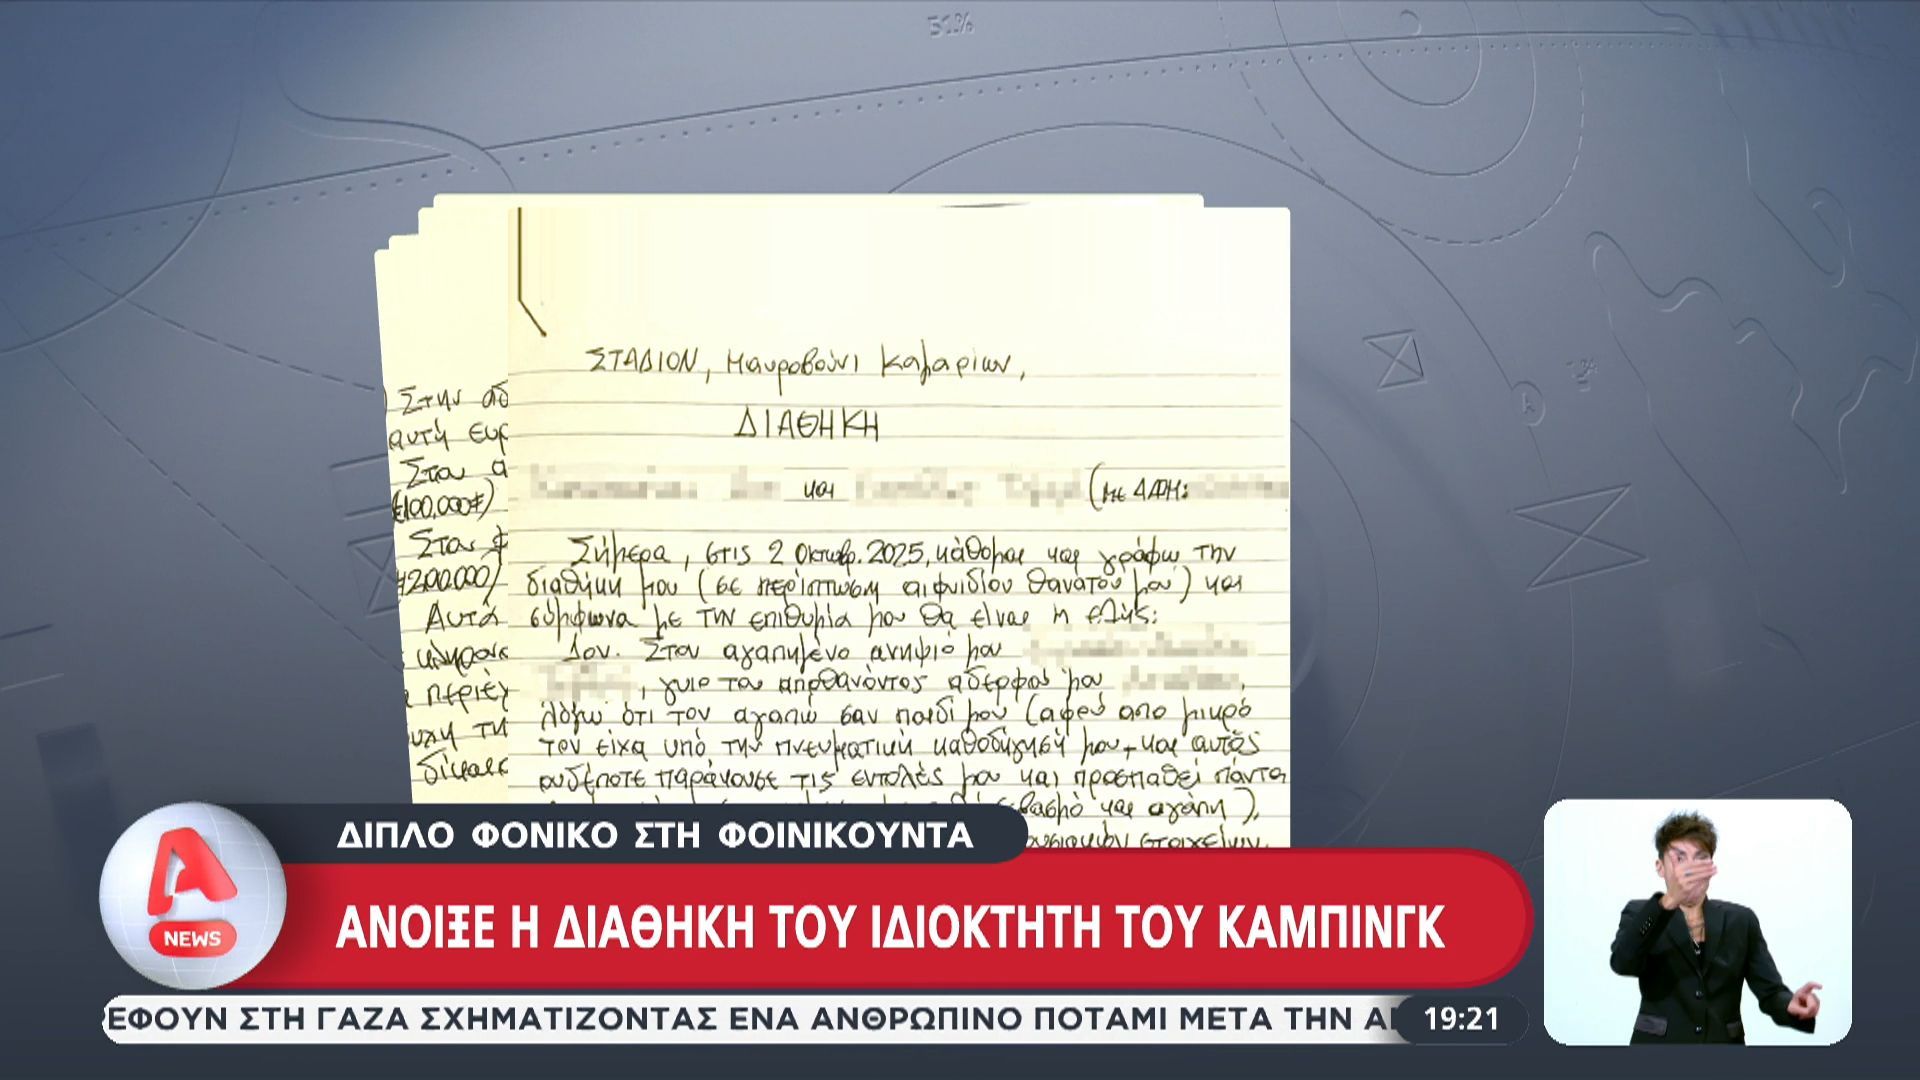 51%
ΣΤΑΔΙΟΝ, Μαυροβούνι Καμαρίων,
ΔΙΑΘΗΚΗ
και (με ΑΦΜ:
Σήμερα, στις 2 Οκτωβρ. 2025, κάθομαι και γράφω την
διαθήκη μου (σε περίπτωση αιφνιδίου θανάτου μου) και
σύμφωνα με την επιθυμία μου θα είναι η εξής:
1ον. Στον αγαπημένο ανηψιό μου
, γυιο του αποθανόντος αδερφού μου
λόγω ότι τον αγαπώ σαν παιδί μου (αφού απο μικρό
τον είχα υπό την πνευματική καθοδήγησή μου, και αυτός
ουδέποτε παράκουσε τις εντολές μου και προσπαθεί πάντα
σεβασμό και αγάπη),
στοιχείων
Στην αδ
αυτή ευρ
Στον α
(€100.000)
Στον φ
200.000)
Αυτά
κληρονο
περιέχ
τη
δίκαιο
ΔΙΠΛΟ ΦΟΝΙΚΟ ΣΤΗ ΦΟΙΝΙΚΟΥΝΤΑ
ΑΝΟΙΞΕ Η ΔΙΑΘΗΚΗ ΤΟΥ ΙΔΙΟΚΤΗΤΗ ΤΟΥ ΚΑΜΠΙΝΓΚ
A NEWS
ΡΕΦΟΥΝ ΣΤΗ ΓΑΖΑ ΣΧΗΜΑΤΙΖΟΝΤΑΣ ΕΝΑ ΑΝΘΡΩΠΙΝΟ ΠΟΤΑΜΙ ΜΕΤΑ ΤΗΝ 19:21